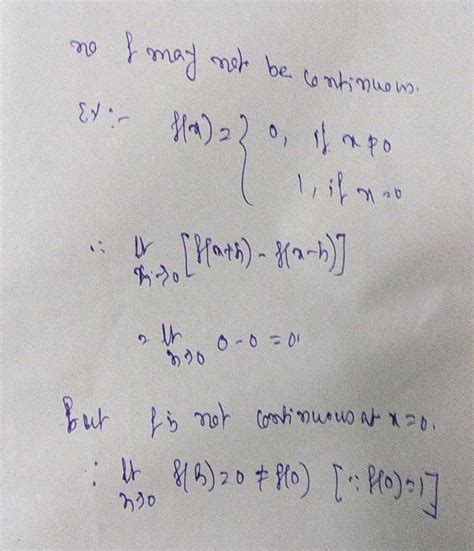 no f may not be continuous.
Ex:- f(x) = { 0, if x ≠ 0
1, if x = 0
∴ lt [f(x+h) - f(x-h)]
h→0
= lt 0-0 = 0.
h→0
But f is not continuous at x=0.
∵ lt f(h)=0 ≠ f(0) [∵ f(0)=1]
h→0